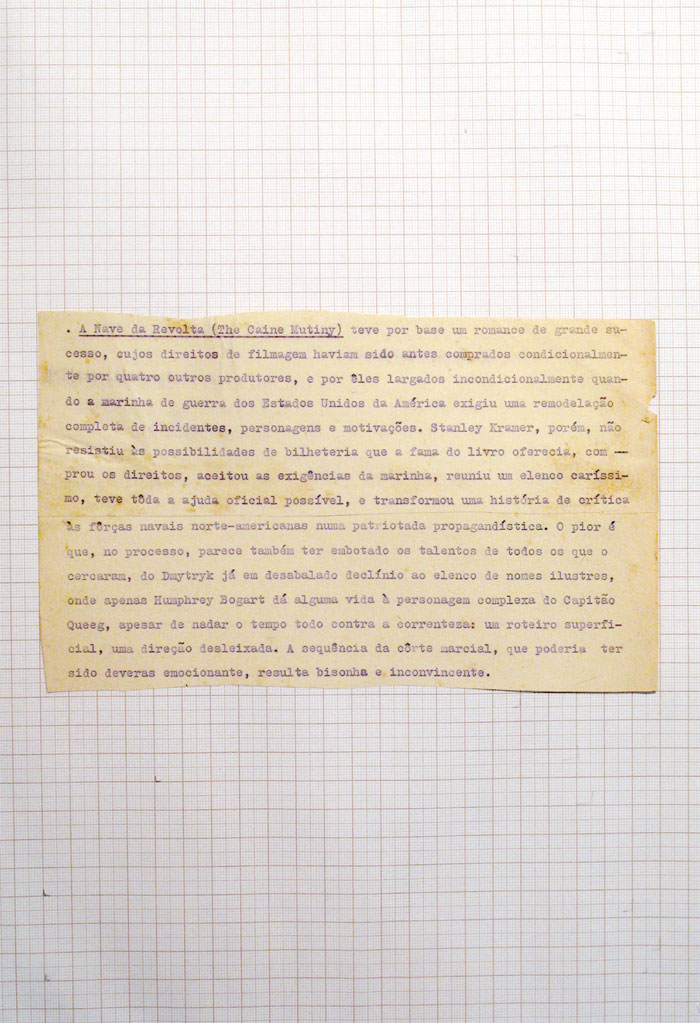 . A Nave da Revolta (The Caine Mutiny) teve por base um romance de grande su-
cesso, cujos direitos de filmagem haviam sido antes comprados condicionalmen-
te por quatro outros produtores, e por êles largados incondicionalmente quan-
do a marinha de guerra dos Estados Unidos da América exigiu uma remodelação
completa de incidentes, personagens e motivações. Stanley Kramer, porém, não
resistiu às possibilidades de bilheteria que a fama do livro oferecia, com —
prou os direitos, aceitou as exigências da marinha, reuniu um elenco caríssi-
mo, teve tôda a ajuda oficial possível, e transformou uma história de crítica
às fôrças navais norte-americanas numa patriotada propagandística. O pior é
que, no processo, parece também ter embotado os talentos de todos os que o
cercaram, do Dmytryk já em desabalado declínio ao elenco de nomes ilustres,
onde apenas Humphrey Bogart dá alguma vida à personagem complexa do Capitão
Queeg, apesar de nadar o tempo todo contra a correnteza: um roteiro superfi-
cial, uma direção desleixada. A sequência da côrte marcial, que poderia ter
sido deveras emocionante, resulta bisonha e inconvincente.